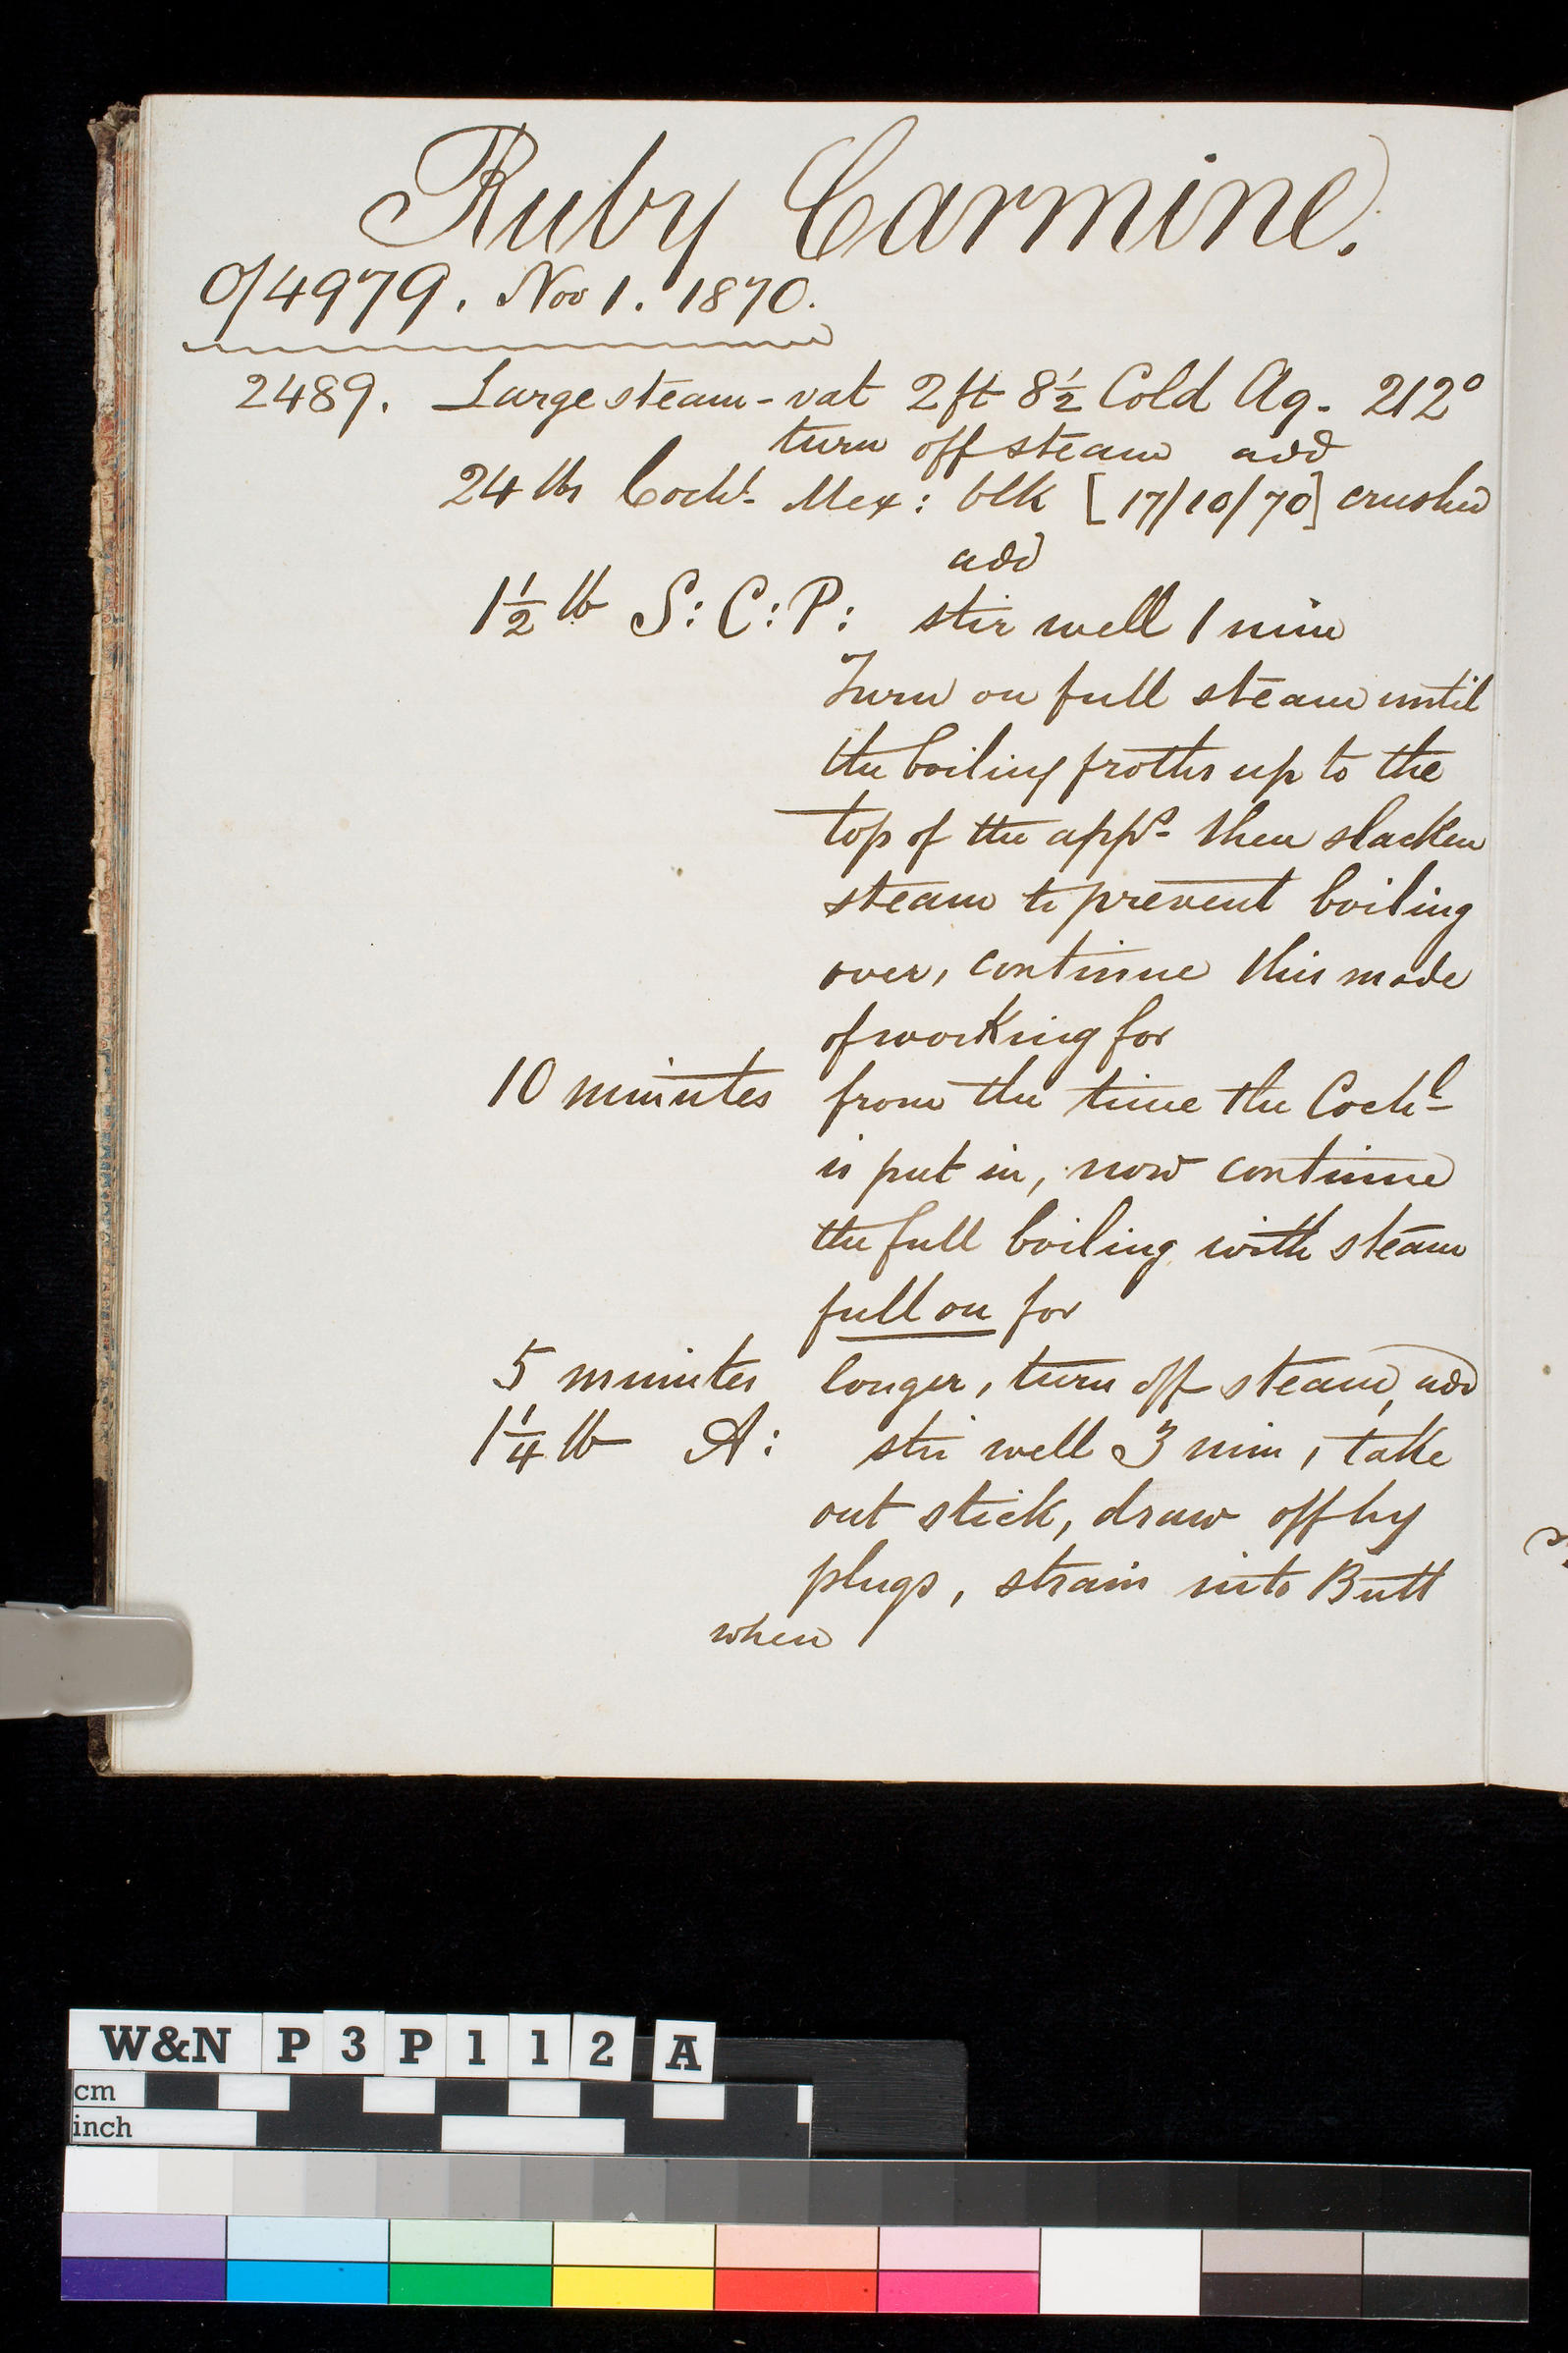 Ruby Carmine.
O/4979. Nov 1. 1870.
2489. Large steam-vat 2 ft 8½ Cold Aq. 212°
turn off steam add
24 lbs Cochl. Mex: blk [17/10/70] crushed
add
1½ lb S: C: P: stir well 1 min
Turn on full steam until
the boiling froths up to the
top of the apps. then slacken
steam to prevent boiling
over, continue this mode
of working for
10 minutes from the time the Cochl
is put in, now continue
the full boiling with steam
full on for
5 minutes longer, turn off steam, add
1¼ lb A: stir well 3 min, take
out stick, draw off by
plugs, strain into Butt
when
W&N P 3 P 1 1 2 A
cm
inch